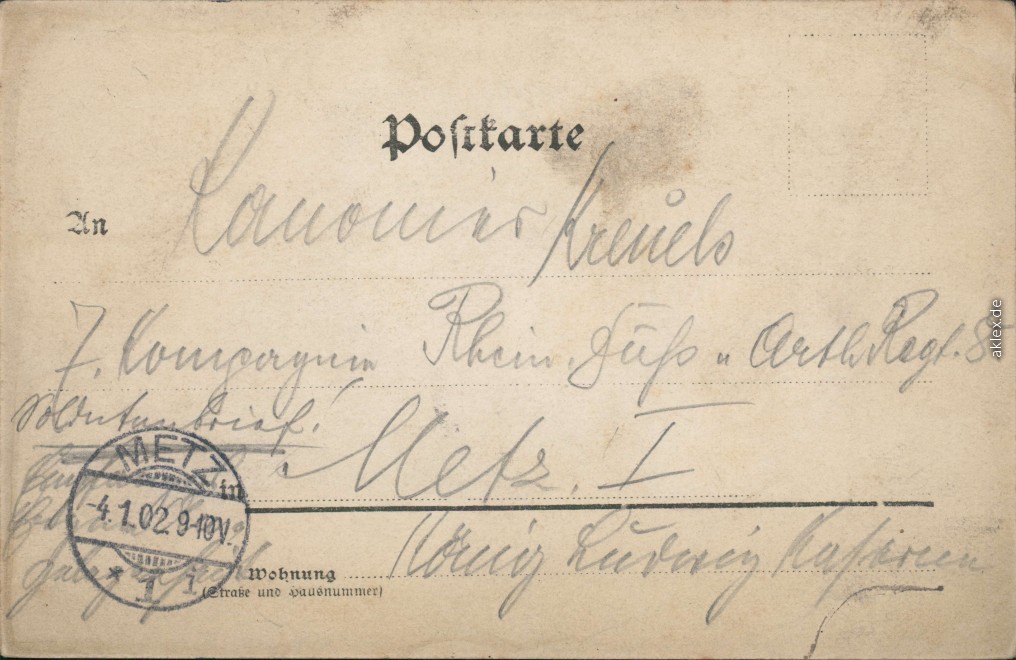 Postkarte
An Kanonier Kreuels
7. Kompagnie Rhein. Fuß u Artl. Regt. 8
Soldatenbrief.
in Metz. I
METZ
-4.1.02.9-10V.
* 1 i
Wohnung König Ludwig Kaserne
(Straße und Hausnummer)
aklex.de